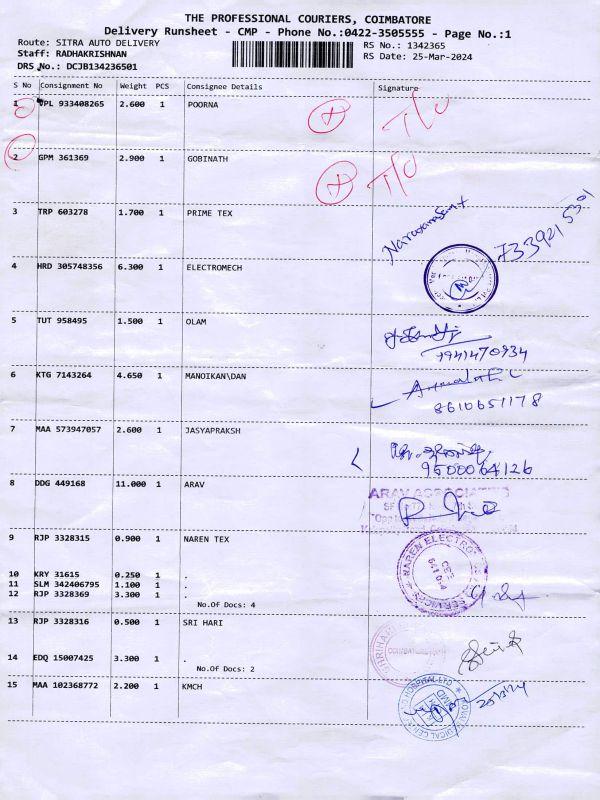 THE PROFESSIONAL COURIERS, COIMBATORE
Delivery Runsheet - CMP - Phone No.:0422-3505555 - Page No.:1
Route: SITRA AUTO DELIVERY
RS No.: 1342365
Staff: RADHAKRISHNAN
RS Date: 25-Mar-2024
DRS No.: DCJB134236501
S No Consignment No Weight PCS Consignee Details Signature
1 JPL 933408265 2.600 1 POORNA T/O
2 GPM 361369 2.900 1 GOBINATH T/O
3 TRP 603278 1.700 1 PRIME TEX
4 HRD 305748356 6.300 1 ELECTROMECH
5 TUT 958495 1.500 1 OLAM
7941470934
6 KTG 7143264 4.650 1 MANOIKAN\DAN
8610651178
7 MAA 573947057 2.600 1 JASYAPRAKSH
9500064126
8 DDG 449168 11.000 1 ARAV
ARAV ASSOCIATES
9 RJP 3328315 0.900 1 NAREN TEX
NAREN ELECTRO SERVICES
10 KRY 31615 0.250 1 .
11 SLM 342406795 1.100 1 .
12 RJP 3328369 3.300 1 .
No.Of Docs: 4
13 RJP 3328316 0.500 1 SRI HARI
14 EDQ 15007425 3.300 1 .
No.Of Docs: 2
15 MAA 102368772 2.200 1 KMCH
25/3/24